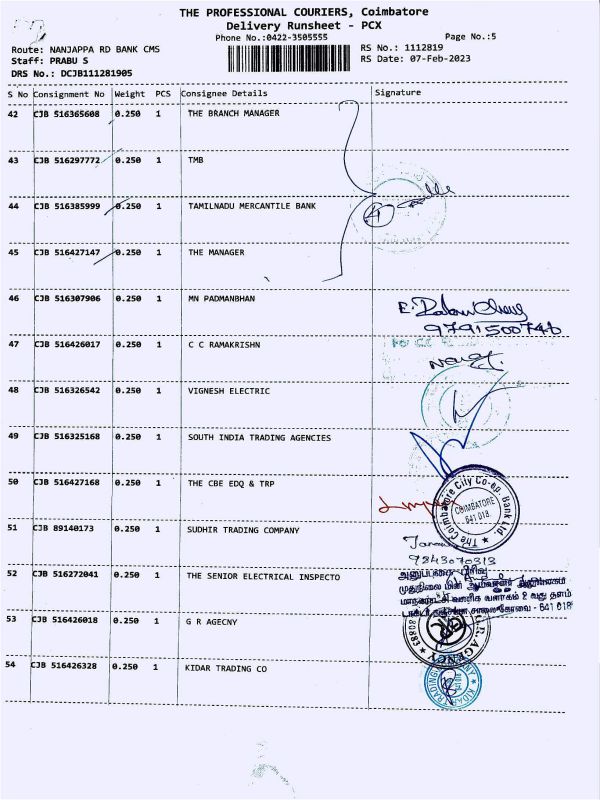 THE PROFESSIONAL COURIERS, Coimbatore
Delivery Runsheet - PCX
Phone No.:0422-3505555 Page No.:5
Route: NANJAPPA RD BANK CMS RS No.: 1112819
Staff: PRABU S RS Date: 07-Feb-2023
DRS No.: DCJB111281905
S No Consignment No Weight PCS Consignee Details Signature
42 CJB 516365608 0.250 1 THE BRANCH MANAGER
43 CJB 516297772 0.250 1 TMB
44 CJB 516385999 0.250 1 TAMILNADU MERCANTILE BANK
45 CJB 516427147 0.250 1 THE MANAGER
46 CJB 516307906 0.250 1 MN PADMANBHAN
9791500740
47 CJB 516426017 0.250 1 C C RAMAKRISHN
48 CJB 516326542 0.250 1 VIGNESH ELECTRIC
49 CJB 516325168 0.250 1 SOUTH INDIA TRADING AGENCIES
50 CJB 516427168 0.250 1 THE CBE EDQ & TRP
The Coimbatore City Co-op. Bank Ltd.
COIMBATORE
641 018.
51 CJB 89140173 0.250 1 SUDHIR TRADING COMPANY
9843070313
52 CJB 516272041 0.250 1 THE SENIOR ELECTRICAL INSPECTO
வளாகம் 2 வது தளம்
641 018
53 CJB 516426018 0.250 1 G R AGECNY
G.R. AGENCY
54 CJB 516426328 0.250 1 KIDAR TRADING CO